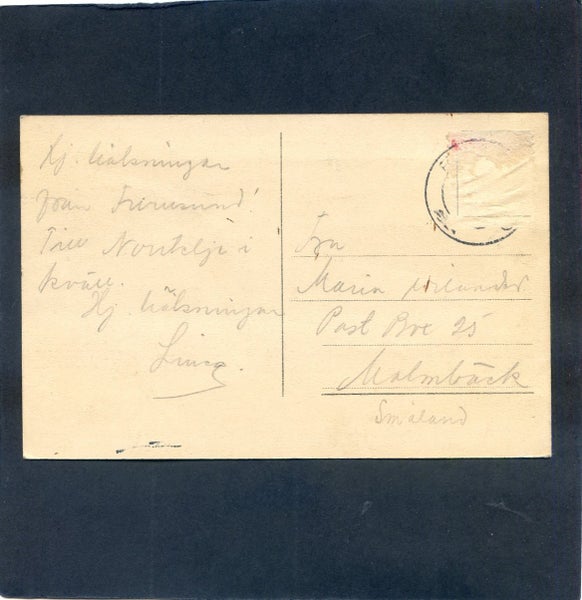 Hj. hälsningar
från Furusund!
Till Norrtelje i
kväll.
Hj. hälsningar
Fru
Maria Wilander
Post Box 25
Malmbäck
Småland